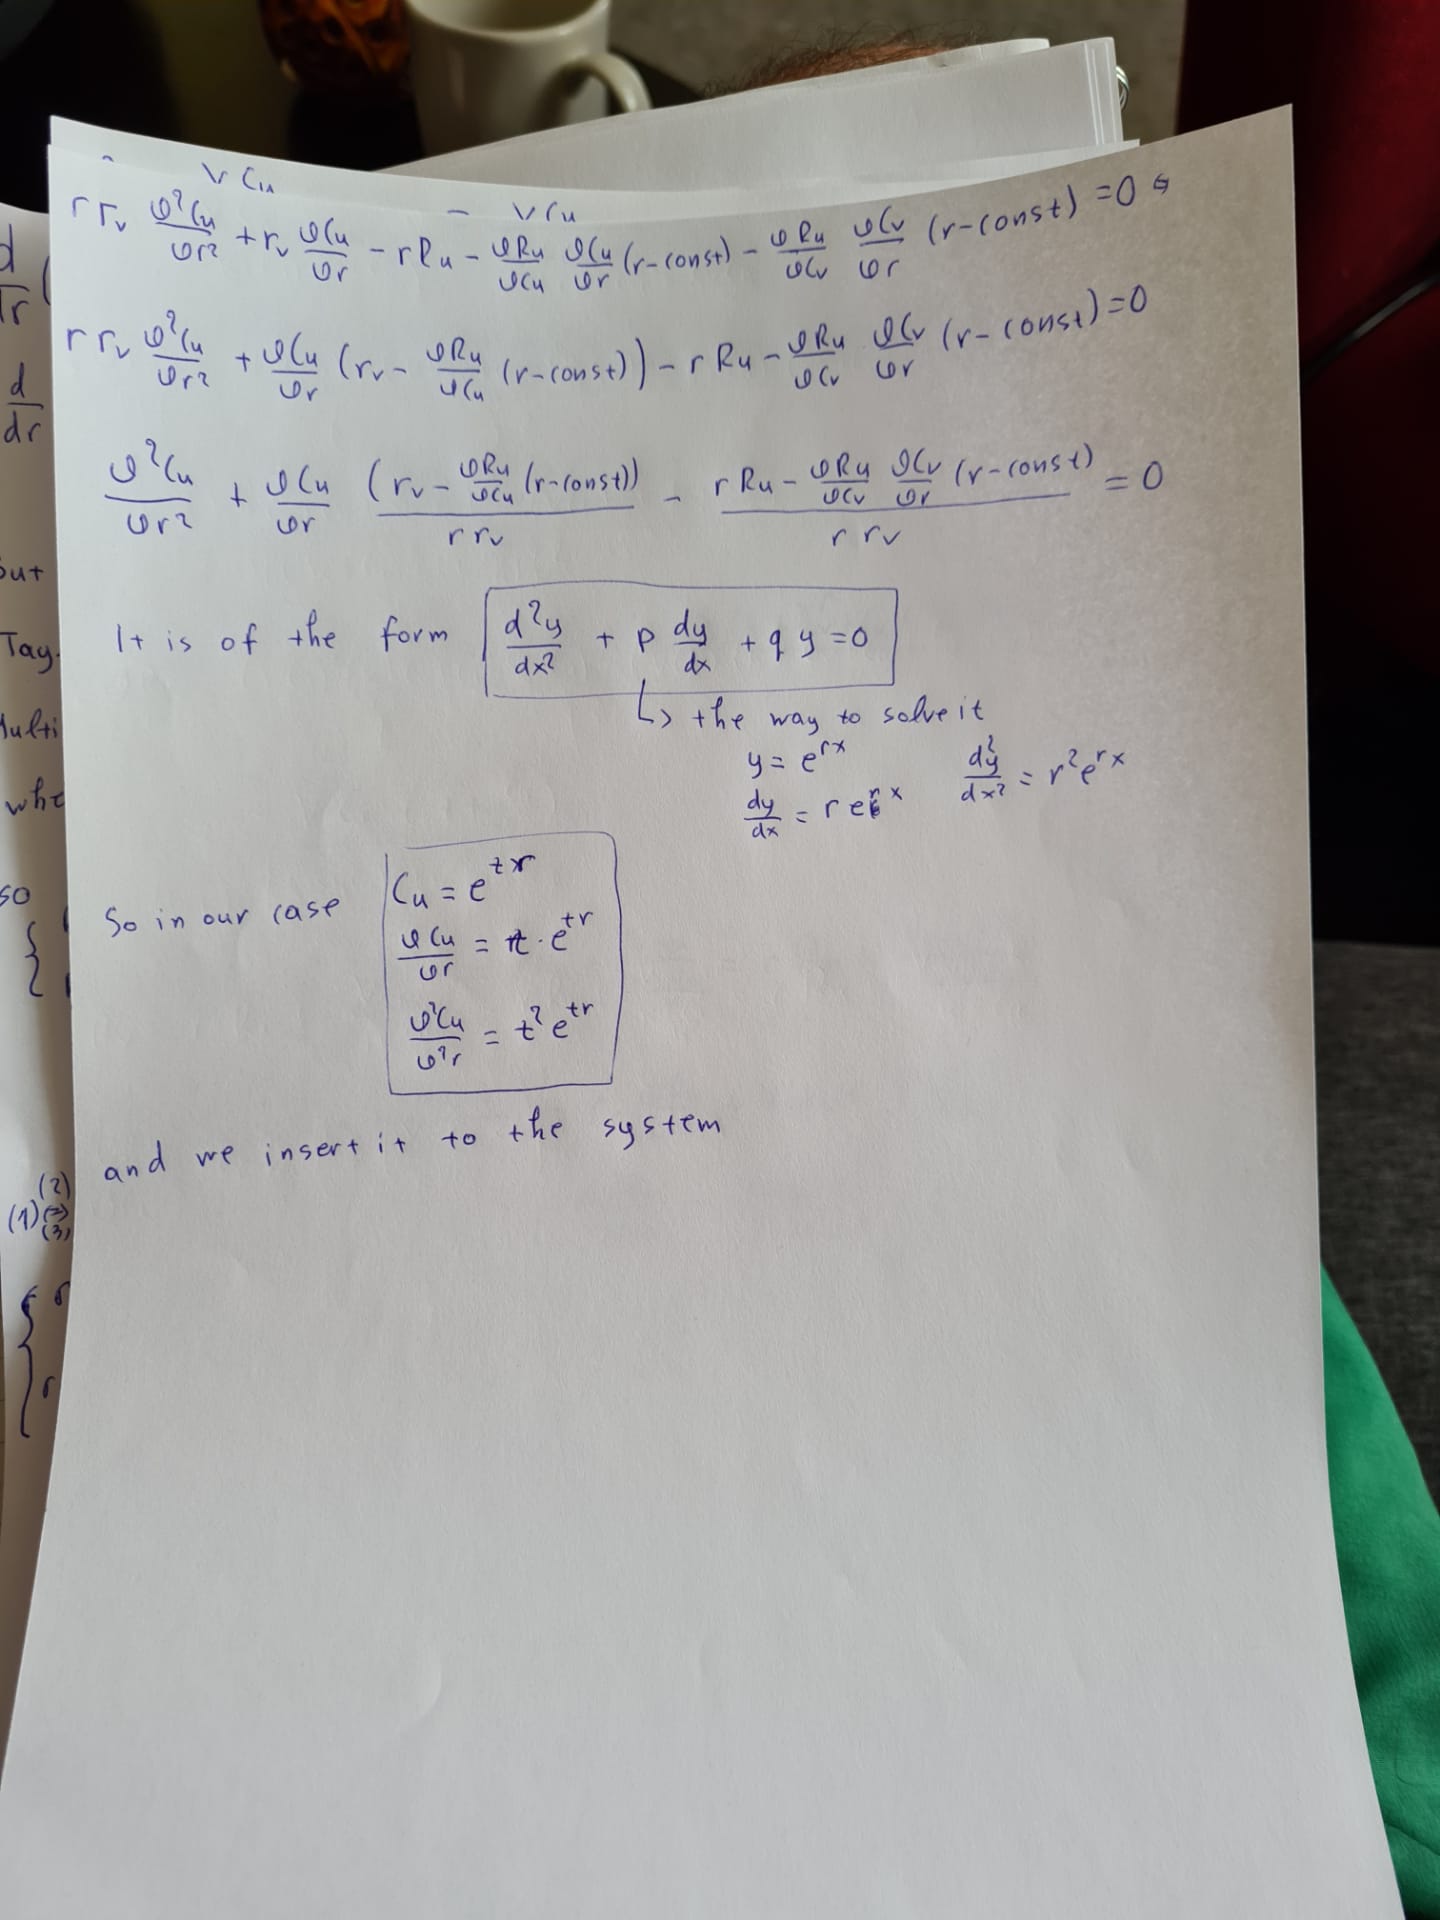 ∂Cu ∂Cu
r rv ∂²Cu/∂r² + rv ∂Cu/∂r - rRu - ∂Ru/∂Cu ∂Cu/∂r (r-const) - ∂Ru/∂Cv ∂Cv/∂r (r-const) = 0 ⇔
r rv ∂²Cu/∂r² + ∂Cu/∂r (rv - ∂Ru/∂Cu (r-const)) - r Ru - ∂Ru/∂Cv ∂Cv/∂r (r-const) = 0
∂²Cu/∂r² + ∂Cu/∂r (rv - ∂Ru/∂Cu (r-const))/r rv - r Ru - ∂Ru/∂Cv ∂Cv/∂r (r-const)/r rv = 0
It is of the form d²y/dx² + p dy/dx + q y = 0
↳ the way to solve it
y = e^rx d²y/dx² = r²e^rx
dy/dx = r e^rx
So in our case Cu = e^tr
∂Cu/∂r = t · e^tr
∂²Cu/∂²r = t² e^tr
and we insert it to the system
d
dr (
d
dr
out
Tay
Multi
whe
so
{
(2)
(1) (=)
(3)
{ r
r